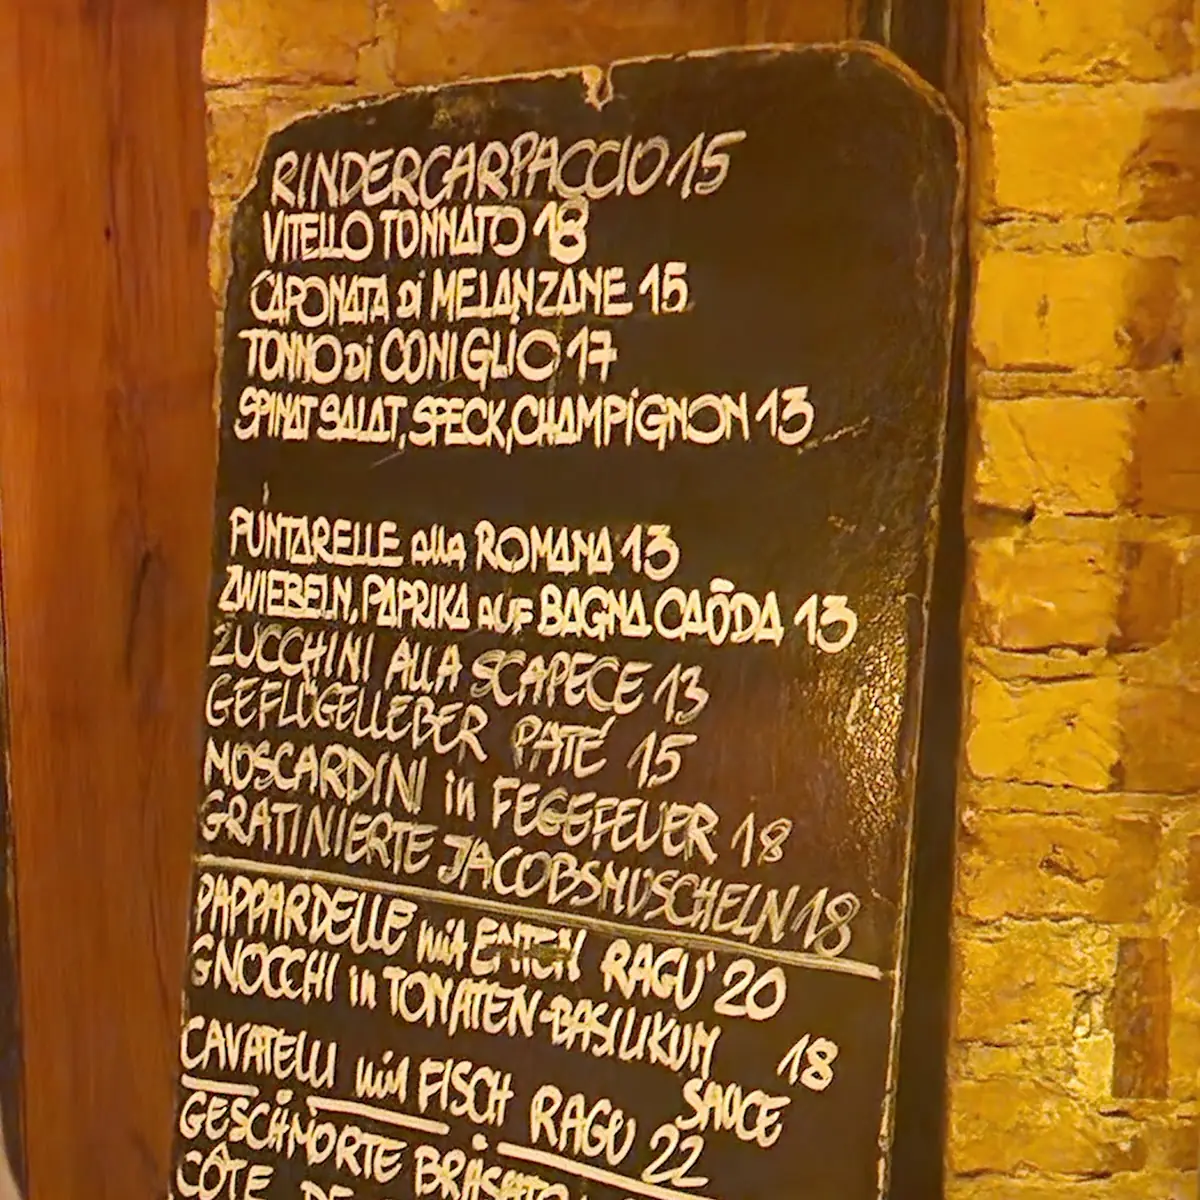 RINDERCARPACCIO 15
VITELLO TONNATO 18
CAPONATA Di MELANZANE 15
TONNO Di CONIGLIO 17
SPINATSALAT, SPECK, CHAMPIGNON 13
PUNTARELLE alla ROMANA 13
ZWIEBELN, PAPRIKA AUF BAGNA CAŌDA 13
ZUCCHINI ALLA SCAPECE 13
GEFLÜGELLEBER PATÉ 15
MOSCARDINI in FEGEFEUER 18
GRATINIERTE JACOBSMUSCHELN 18
PAPPARDELLE mit ENTEN RAGU' 20
GNOCCHI in TOMATEN-BASILIKUM 18
SAUCE
CAVATELLI mit FISCH RAGU 22
GESCHMORTE
CÔTE DE